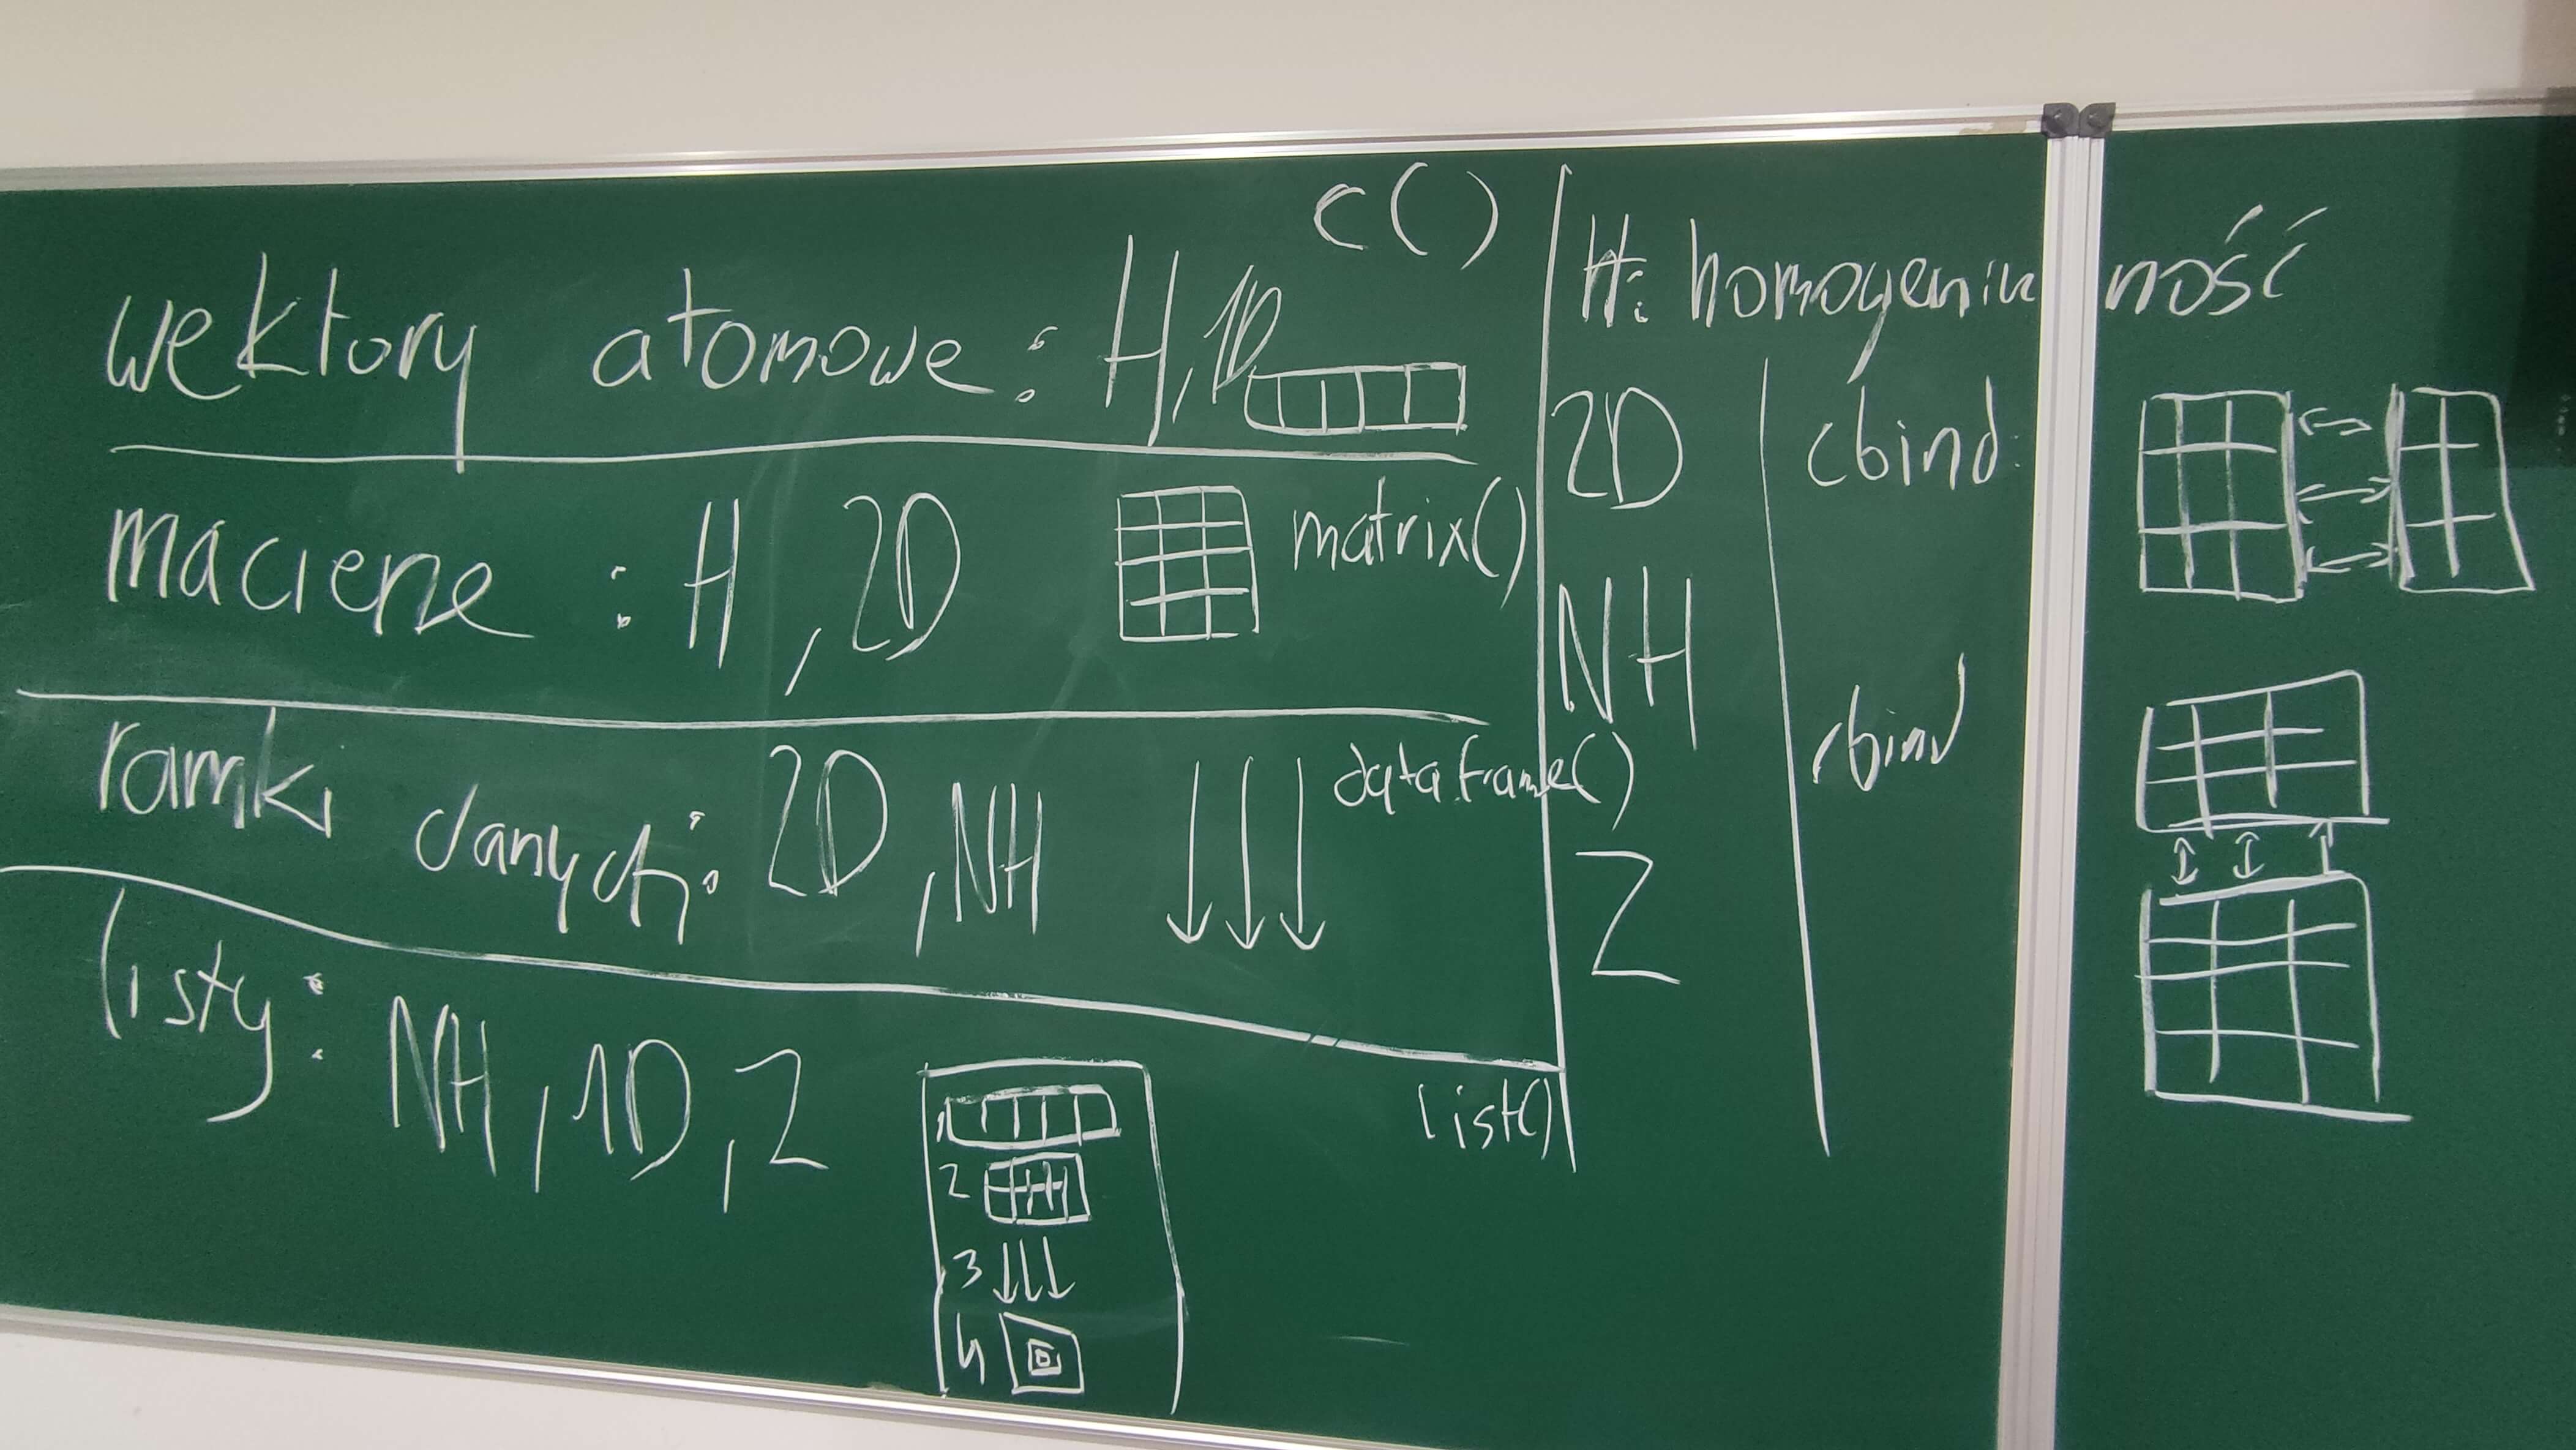 c()
wektory atomowe: H, 1D
macierze : H, 2D matrix()
ramki danych: 2D, NH data.frame()
listy: NH, 1D, Z list()
1
2
3
4
H: homogeniczność
2D
NH
Z
cbind
rbind